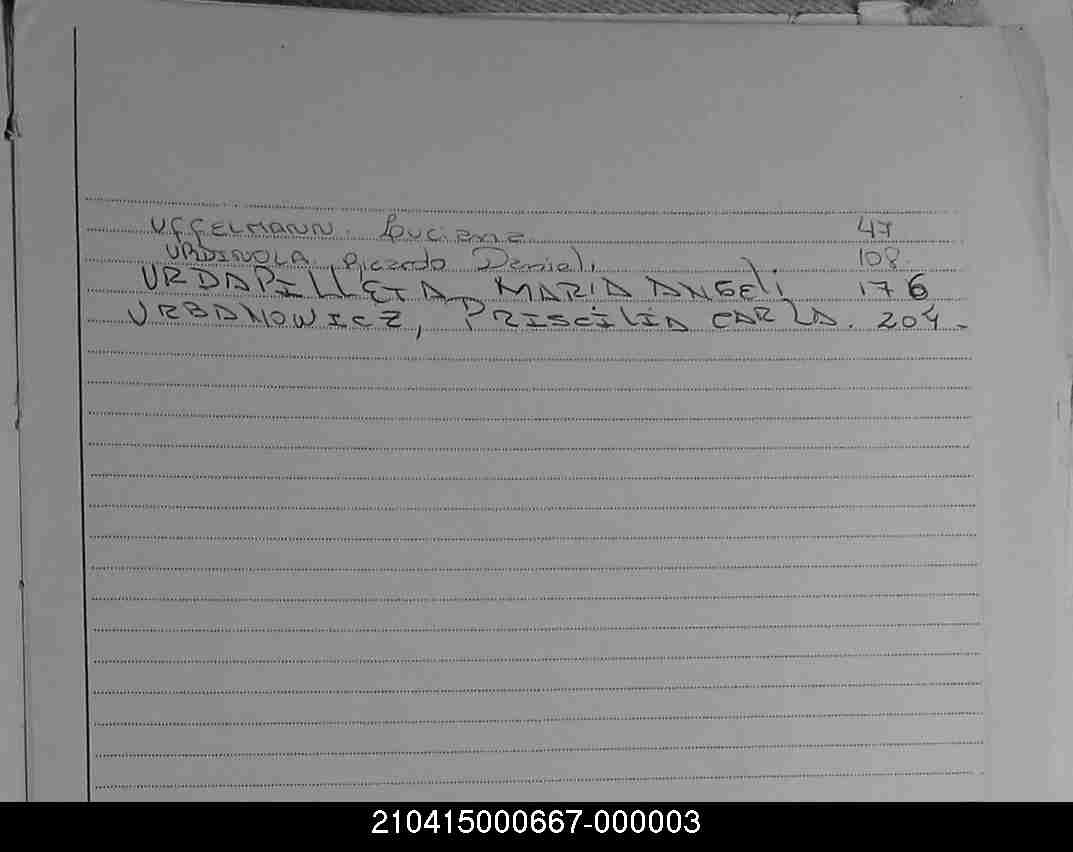 UFFELMANN. Luciana 47
URDINOLA Ricardo Daniel. 108.
URDAPILLETA MARIA ANGELi 176
URBANOWICZ, PRISCiLiA CARLA. 204.
210415000667-000003